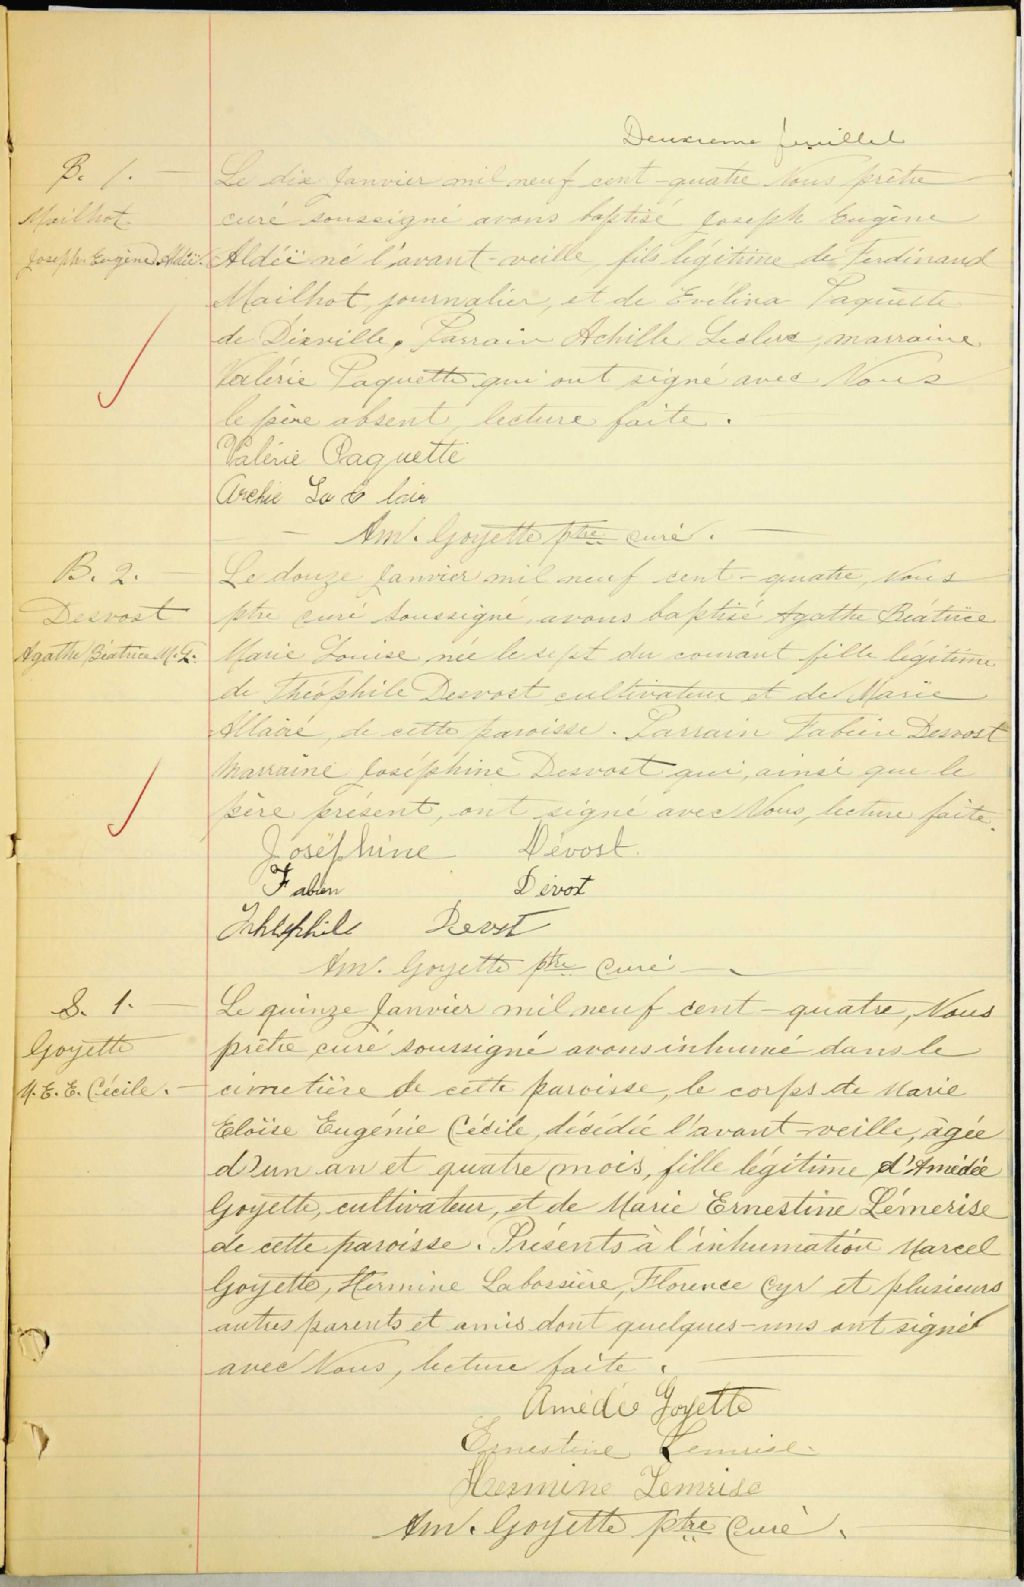 Deuxième feuillet
B. 1.
Mailhot
Joseph Eugène Aldéï.
Le dix Janvier mil neuf cent-quatre Nous prêtre
curé soussigné avons baptisé Joseph Eugène
Aldéï né l'avant-veille, fils légitime de Ferdinand
Mailhot, journalier, et de Evelina Paquette
de Dixville. Parrain Achille Leclerc, marraine
Valérie Paquette qui ont signé avec Nous
le père absent, lecture faite.
Valérie Paquette
Archie La C lair
Am. Goyette ptre curé.
B. 2.
Desvost
Agathe Béatrice M. L.
Le douze Janvier mil neuf cent-quatre, Nous
ptre curé soussigné, avons baptisé Agathe Béatrice
Marie Louise née le sept du courant fille légitime
de Théophile Desvost cultivateur et de Marie
Allaire, de cette paroisse. Parrain Fabien Desvost
marraine Joséphine Desvost qui, ainsi que le
père présent, ont signé avec Nous, lecture faite.
Joséphine Dévost.
Fabien Dévost
Devost
Am. Goyette ptre curé
S. 1.
Goyette
M. E. E. Cécile.
Le quinze Janvier mil neuf cent-quatre, Nous
prêtre curé soussigné avons inhumé dans le
cimetière de cette paroisse, le corps de Marie
Eloïse Eugénie Cécile, décédée l'avant-veille, âgée
d'un an et quatre mois, fille légitime d'Amédée
Goyette, cultivateur, et de Marie Ernestine Lémerise
de cette paroisse. Présents à l'inhumation Marcel
Goyette, Hermine Labossière, Florence Cyr et plusieurs
autres parents et amis dont quelques-uns ont signé
avec Nous, lecture faite.
Amédée Goyette
Ernestine Lemrise.
Hermine Lemrise
Am. Goyette ptre curé.